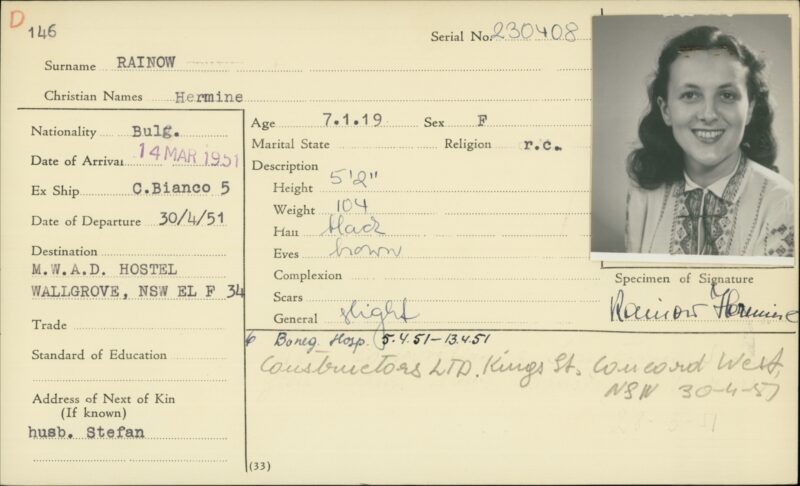 D 146
Serial No. 230408
Surname RAINOW
Christian Names Hermine
Nationality Bulg.
Date of Arrival 14 MAR 1951
Ex Ship C.Bianco 5
Date of Departure 30/4/51
Destination
M.W.A.D. HOSTEL
WALLGROVE, NSW EL F 34
Trade
Standard of Education
Address of Next of Kin
(If known)
husb. Stefan
Age 7.1.19 Sex F
Marital State Religion r.c.
Description
Height 5'2"
Weight 104
Hair black
Eyes brown
Complexion
Scars
General slight
Specimen of Signature
Rainow Hermine
6 Boneg. Hosp. 5.4.51-13.4.51
Constructors LTD. Kings St. Concord West,
NSW 30-4-51
(33)